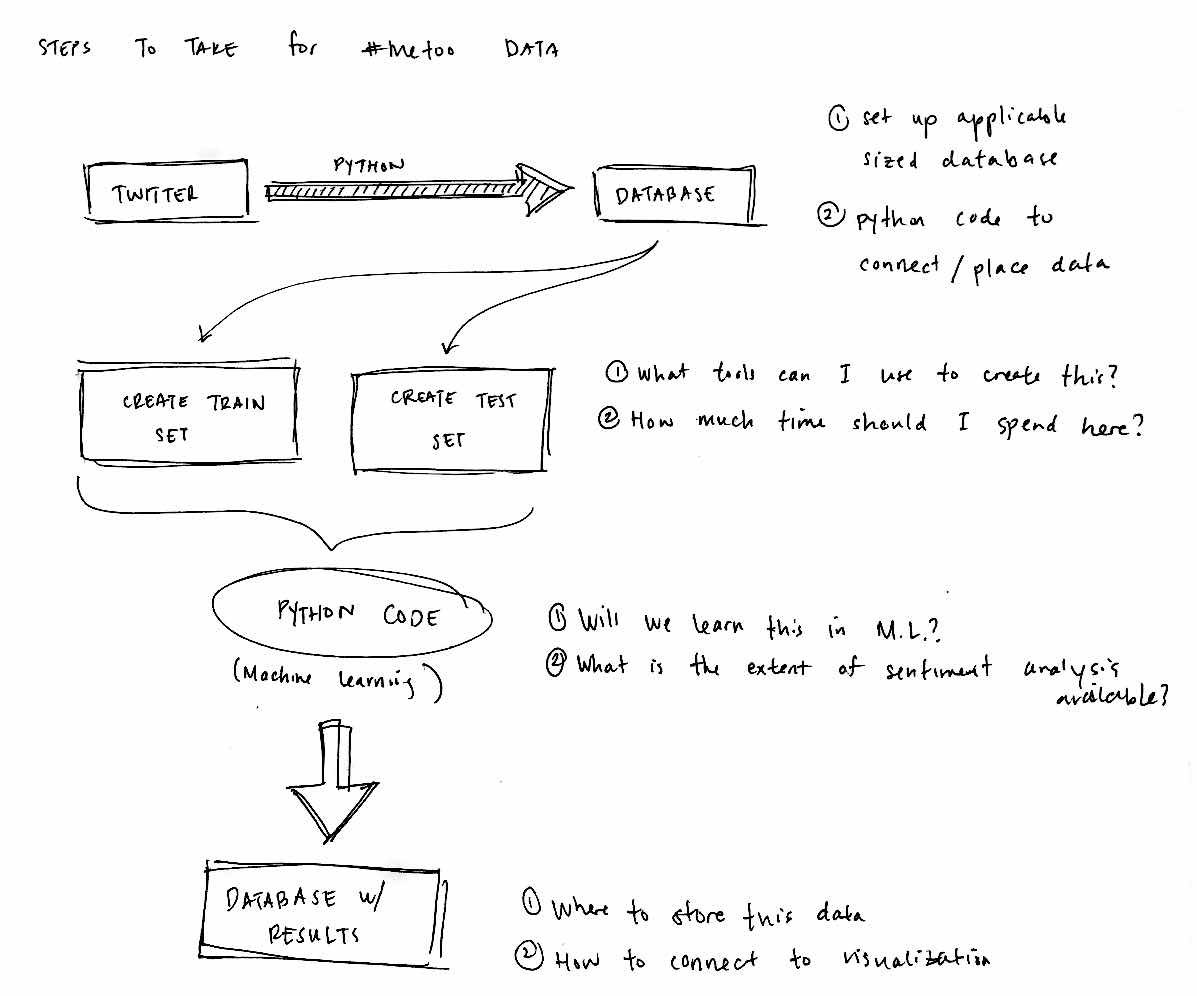 STEPS TO TAKE for #metoo DATA
PYTHON
TWITTER
DATABASE
① set up applicable
sized database
② python code to
connect / place data
CREATE TRAIN
SET
CREATE TEST
SET
① What tools can I use to create this?
② How much time should I spend here?
PYTHON CODE
(Machine Learning)
① Will we learn this in M.L.?
② What is the extent of sentiment analysis
available?
DATABASE w/
RESULTS
① Where to store this data
② How to connect to visualization